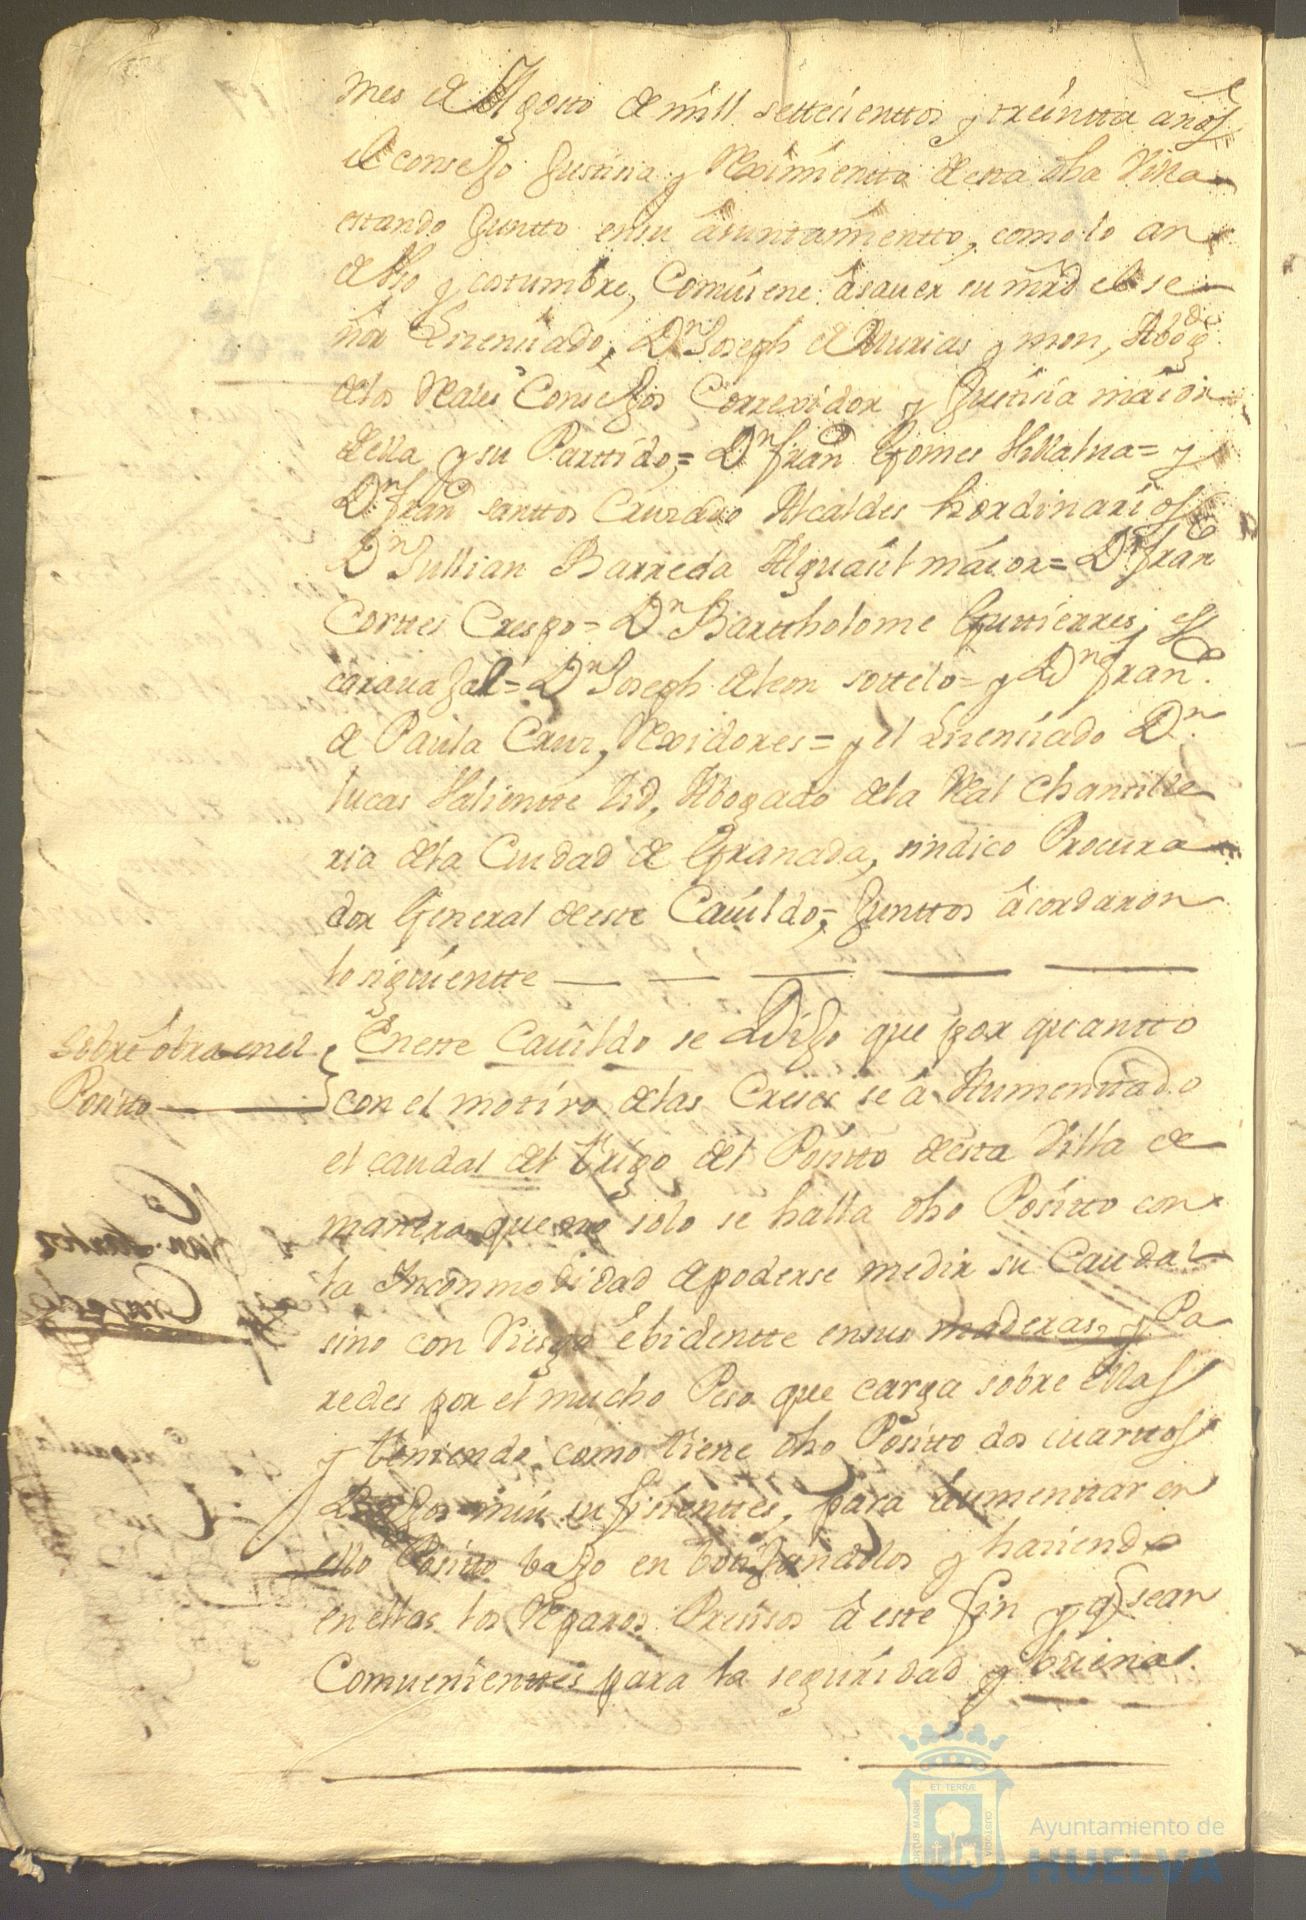 mes de Agosto de mill settecienttos y treíntta años
el consejo Justicia y Reximientto de esta dha Villa
estando Juntto en su aiuntamientto, como lo an
de Uso y costumbre, Comviene âsaver su mrd el se
ñor Lizenciado, Dn Joseph de Murias y mon, Abogdo
de los Rales Consejos Correxidor y Justicia maior
della y su Parttido,= Dn Fran Gomes Hillalua= y
Dn Fran santtos Cruzado Alcaldes hordinarios
Dn Jullian Barreda Alguaçil máior= Dn Franco
Corttes Crespo= Dn Barttholome Guttierres,
carauajal= Dn Joseph de leon sottelo= y Dn Franco
de Paula Cruz, Rexidores= y el Lizenciado Dn
lucas Valientte Vid, Abogado de la Real Chanzille
ria de la Ciudad de Granada, sindico Procura
dor General de este Cauildo,= Junttos âcordaron
lo siguientte
Sobre óbra en el
Posítto
En este Cauîldo se Dijo que por quantto
con el motivo de las Creses se â Aumenttado
el caudal del trigo del Posítto desta Villa de
manera que no solo se halla dho Posítto con
la Inconmodidad de poderse medir su Caudal
sino con Riesgo êbidentte en sus maderas, y Pa
redes por el mucho Peso que carga sobre ellas
y teniendo como tiene dho Positto dos cuarttos
Bajos mui sufizienttes, para âumenttar en
ello Positto bajo en y haziendo
en ellas los Reparos Presisos â este fin y q sean
Comvenienttes para la seguridad y buena
Ayuntamiento de
HUELVA